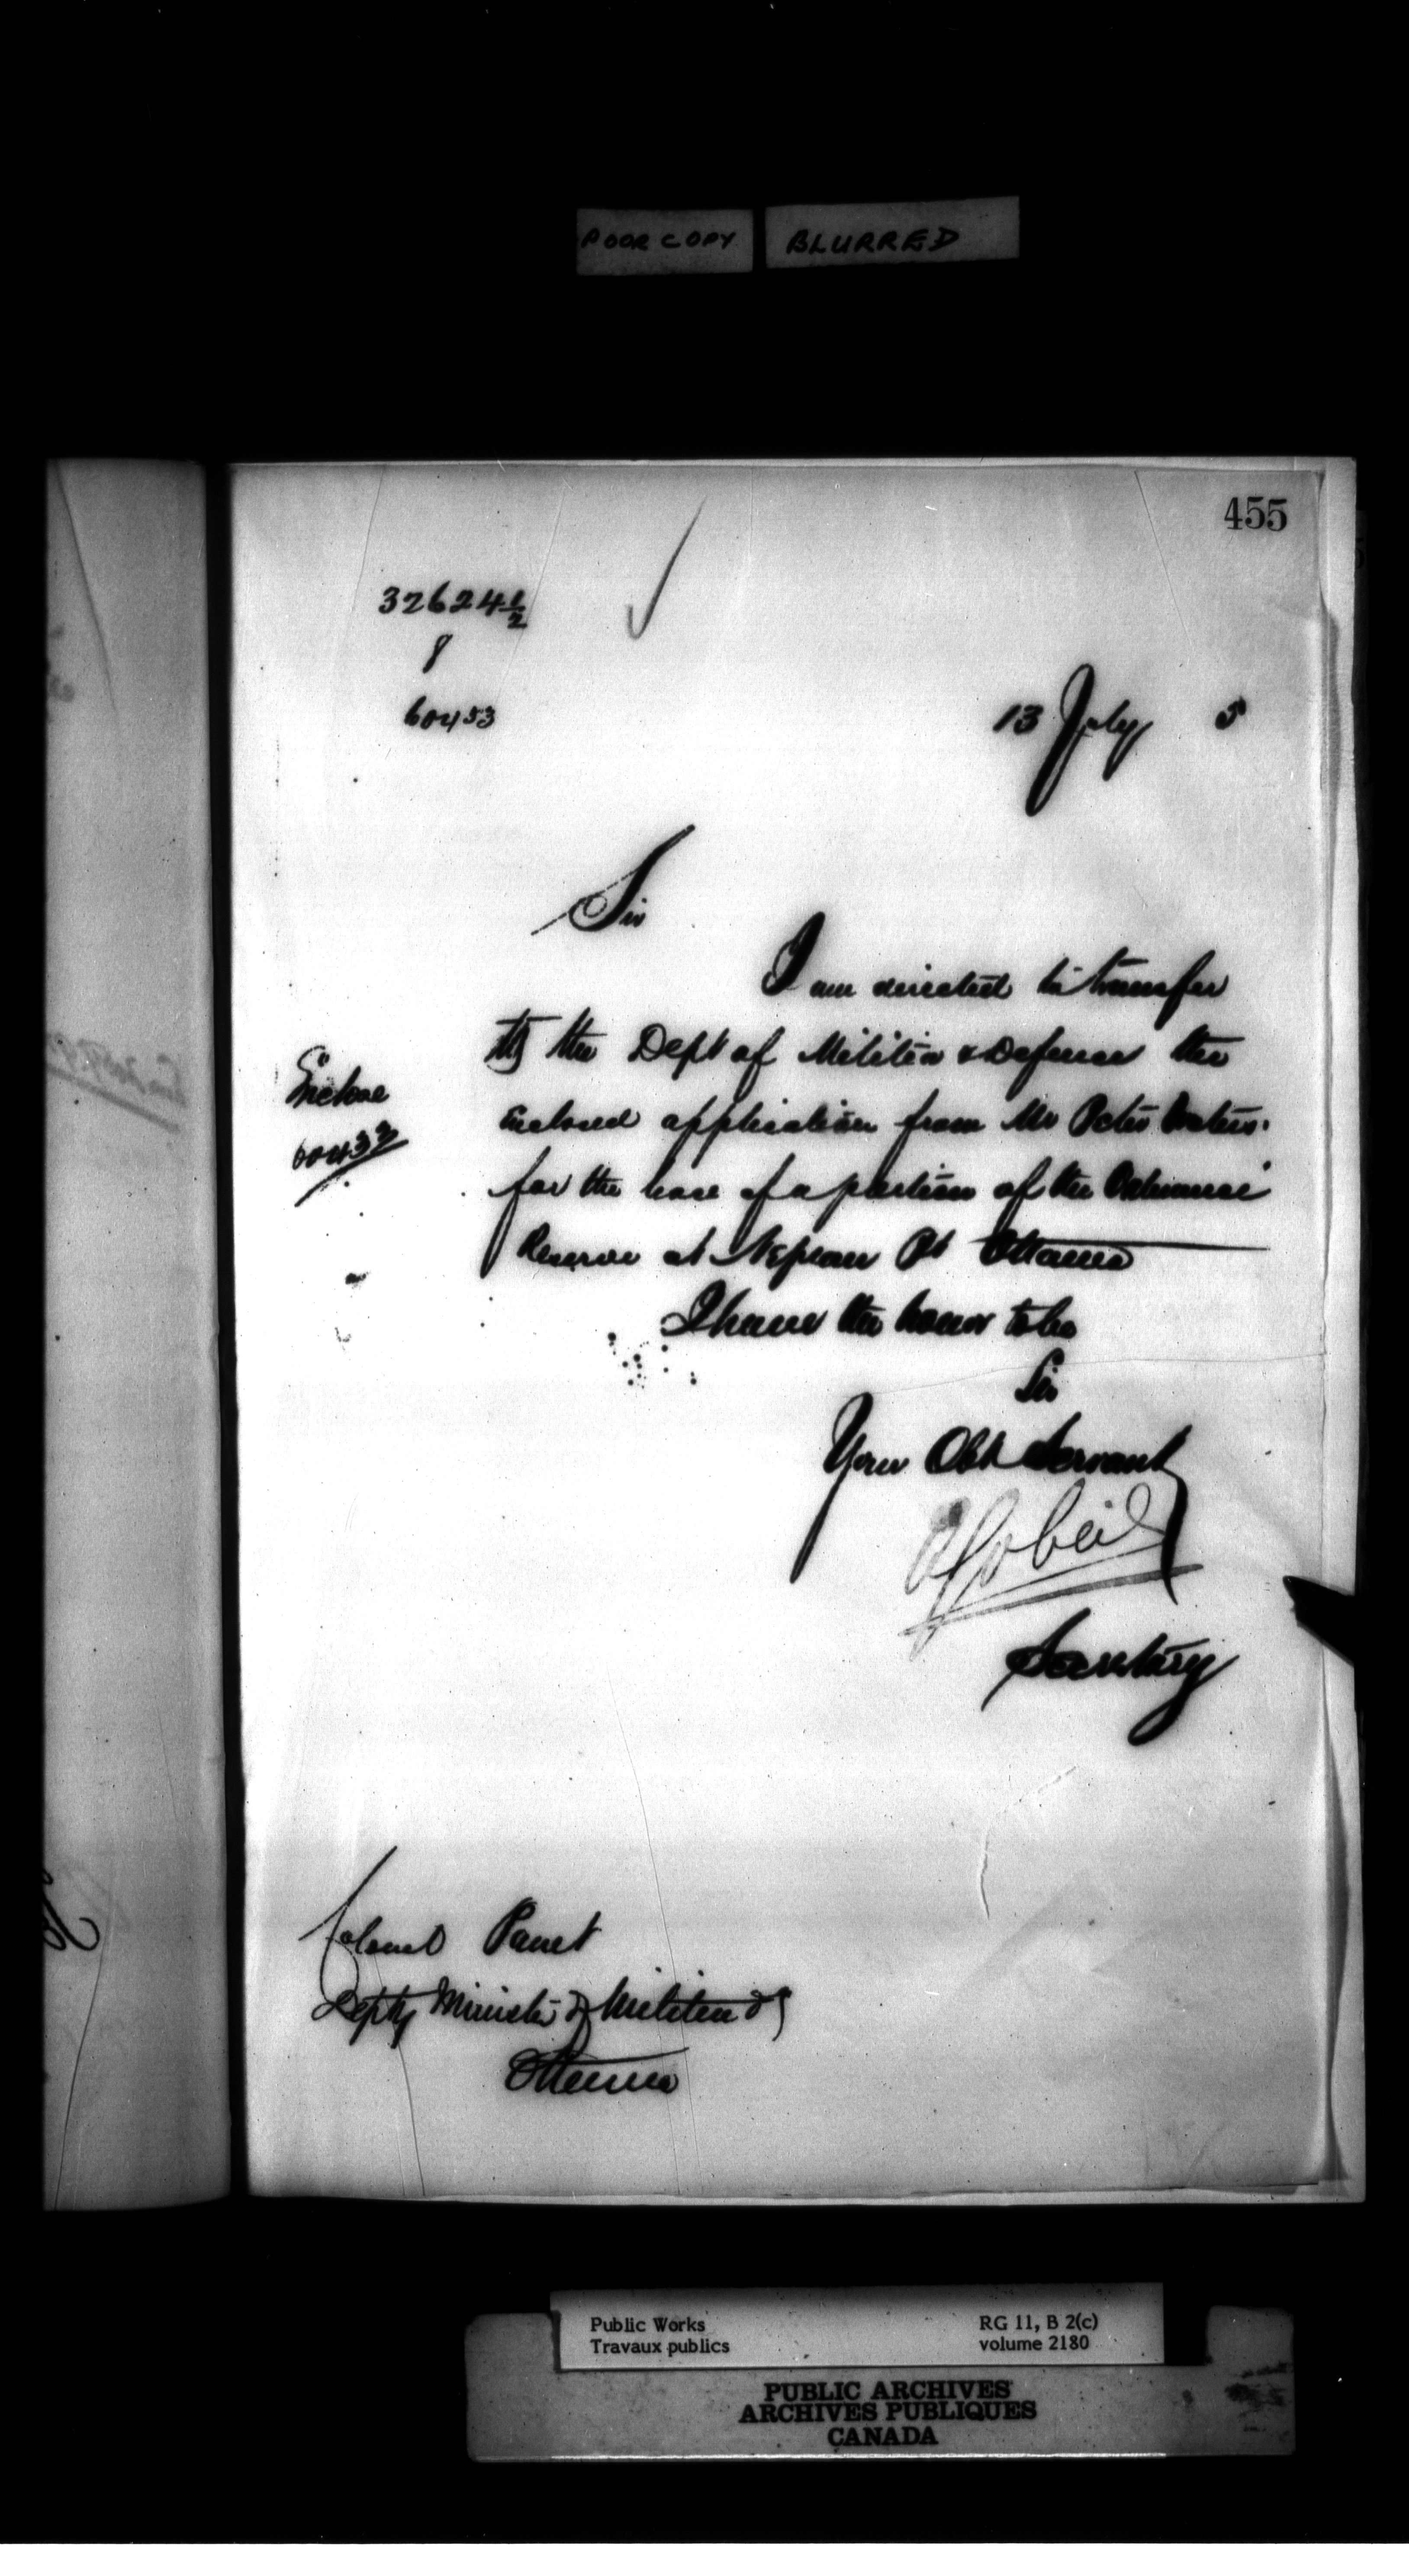 POOR COPY BLURRED
455
32624½
8
60453
13 July 5
Sir
I am directed to transfer
to the Dept of Militia & Defense the
Enclose
enclosed application from Mr Peter
60433
for the lease of a portion of the Ordnance
Reserve at Nepean Pt Ottawa
I have the honor to be
Sir
Your Obt Servant
Secretary
Colonel Panet
Depty Minister of Militia &c
Ottawa
Public Works RG 11, B 2(c)
Travaux publics volume 2180
PUBLIC ARCHIVES
ARCHIVES PUBLIQUES
CANADA